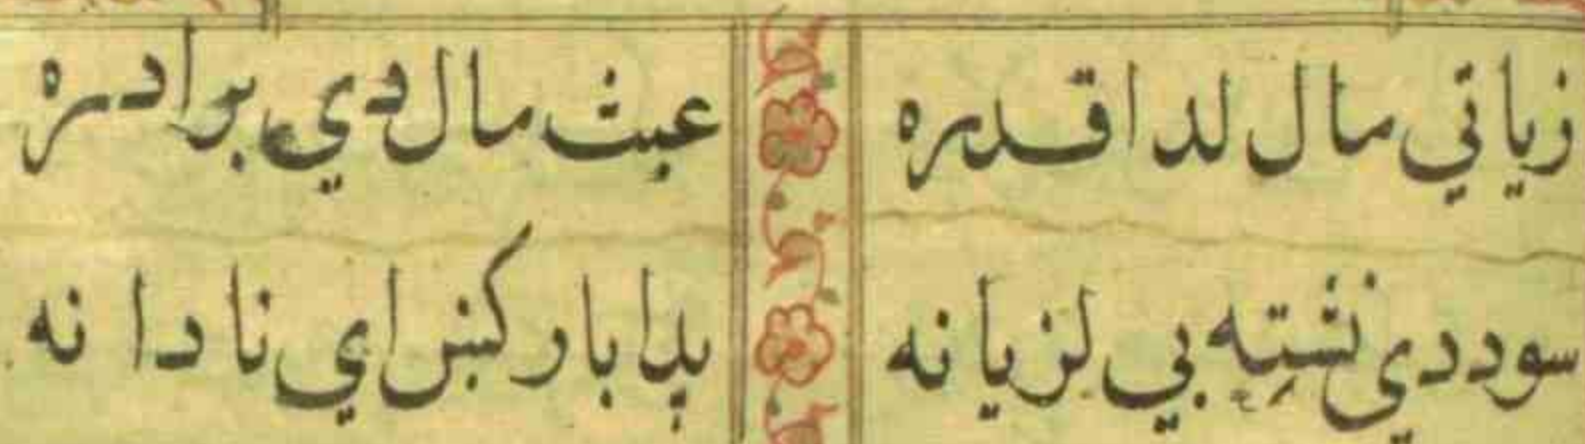 زياتي مال لدا قدره عبث مال دي برادره
سود دي نشته بي لزيانه پدا بار کښ اي نادانه